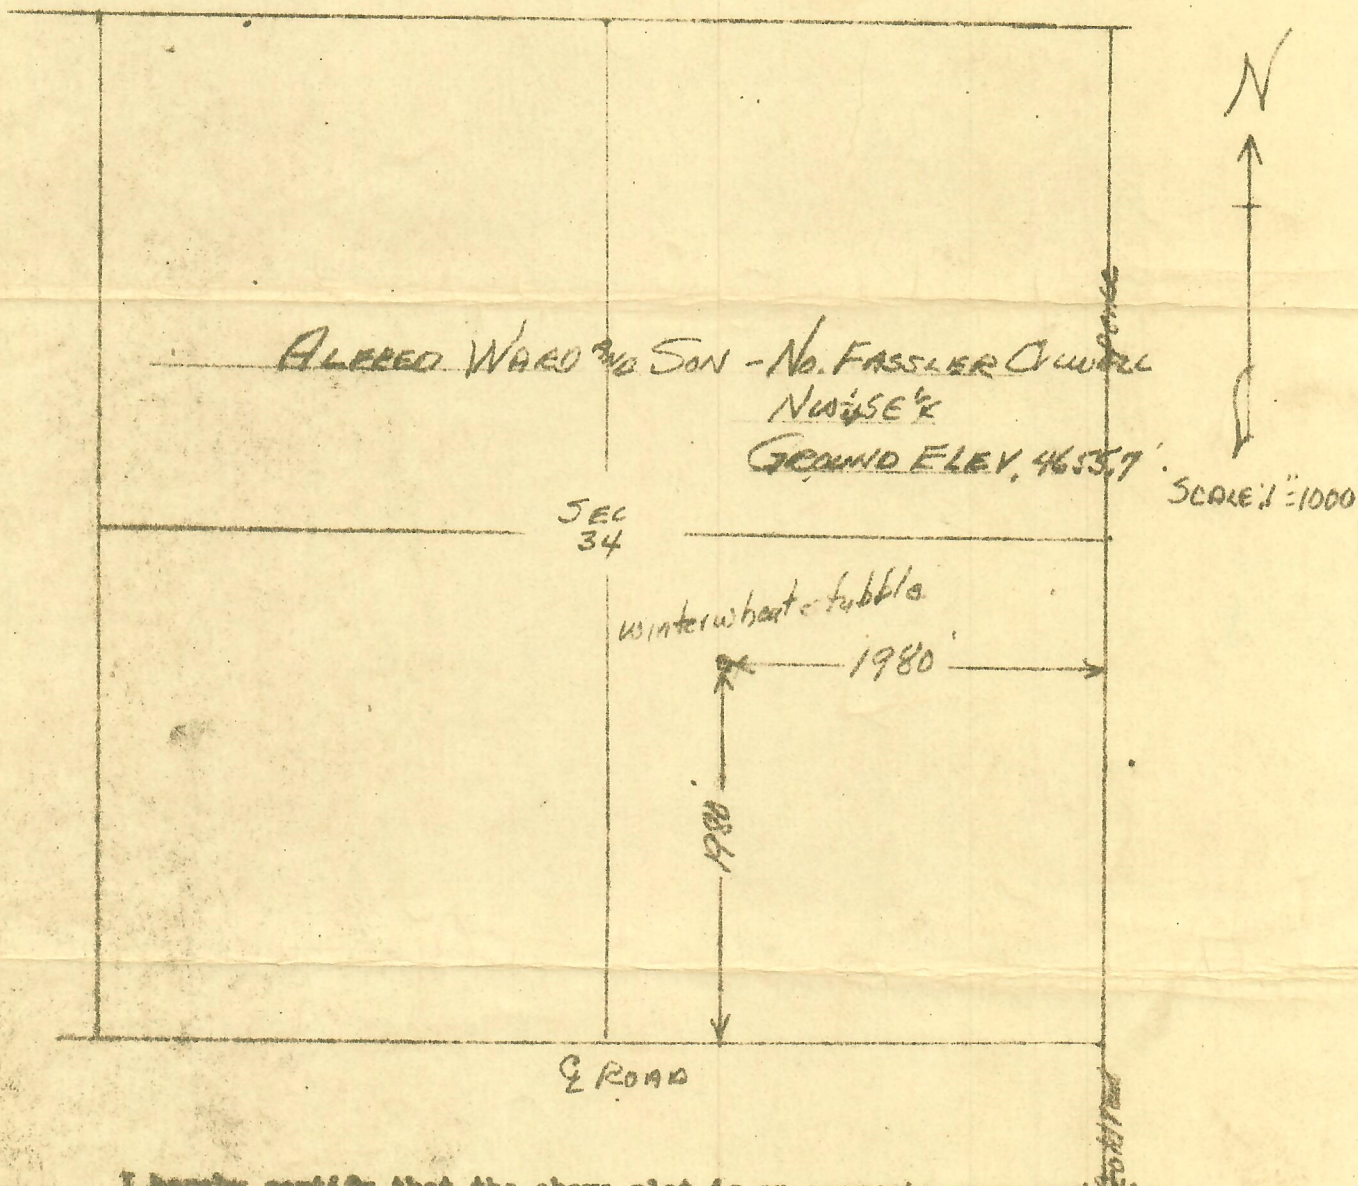 N
FENCE
ALFRED WARD AND SON - No. FASSLER OILWELL
NW¼SE¼
GROUND ELEV. 4655.7'
SCALE: 1"=1000
SEC
34
winterwheat stubble
1980'
1980
℄ ROAD
I hereby certify that the above plat is an